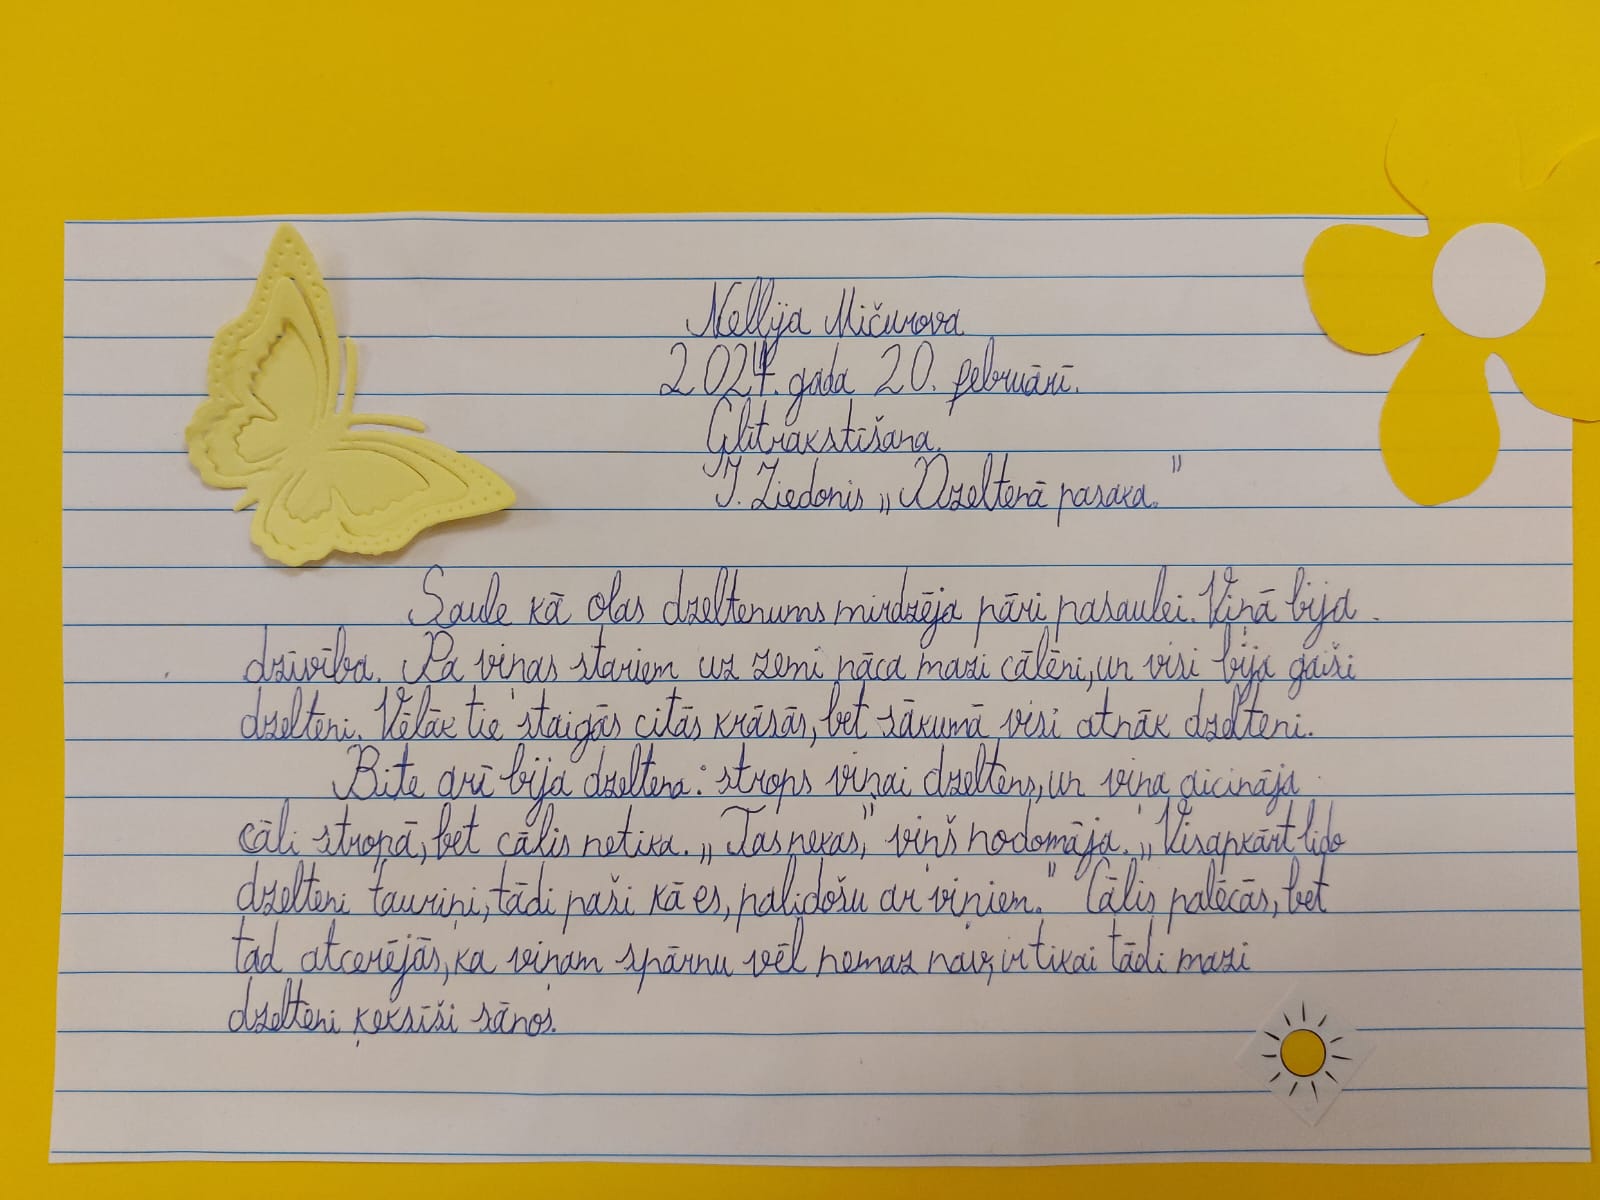 Nellija Mičurova
2024. gada 20. februārī.
Glītrakstīšana.
I. Ziedonis „Dzeltenā pasaka."
Saule kā olas dzeltenums mirdzēja pāri pasaulei. Viņā bija
dzīvība. Pa viņas stariem uz zemi nāca mazi cālēni, un visi bija gaiši
dzelteni. Vēlāk tie staigās citās krāsās, bet sākumā visi atnāk dzelteni.
Bite arī bija dzeltena: strops viņai dzeltens, un viņa aicināja
cāli stropā, bet cālis netika. „Tas nekas," viņš nodomāja. „Visapkārt lido
dzelteni tauriņi, tādi paši kā es, palidošu ar viņiem." Cālis palēcās, bet
tad atcerējās, ka viņam spārnu vēl nemaz nav, ir tikai tādi mazi
dzelteni ķeksīši sānos.